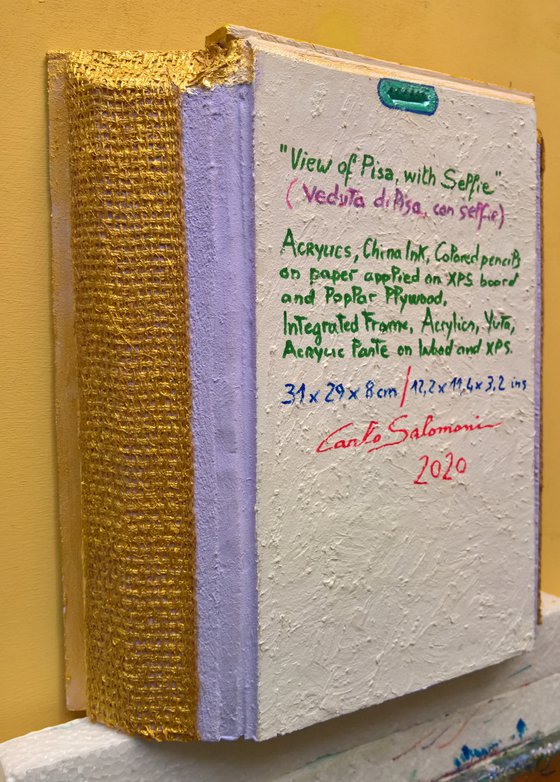 "View of Pisa, with Selfie"
(Veduta di Pisa, con selfie)
Acrylics, China Ink, Colored pencils
on paper applied on XPS board
and Poplar Plywood,
Integrated Frame, Acrylics, Yuta,
Acrylic Paste on Wood and XPS.
31 x 29 x 8 cm / 12,2 x 11,4 x 3,2 ins
Carlo Salomoni
2020